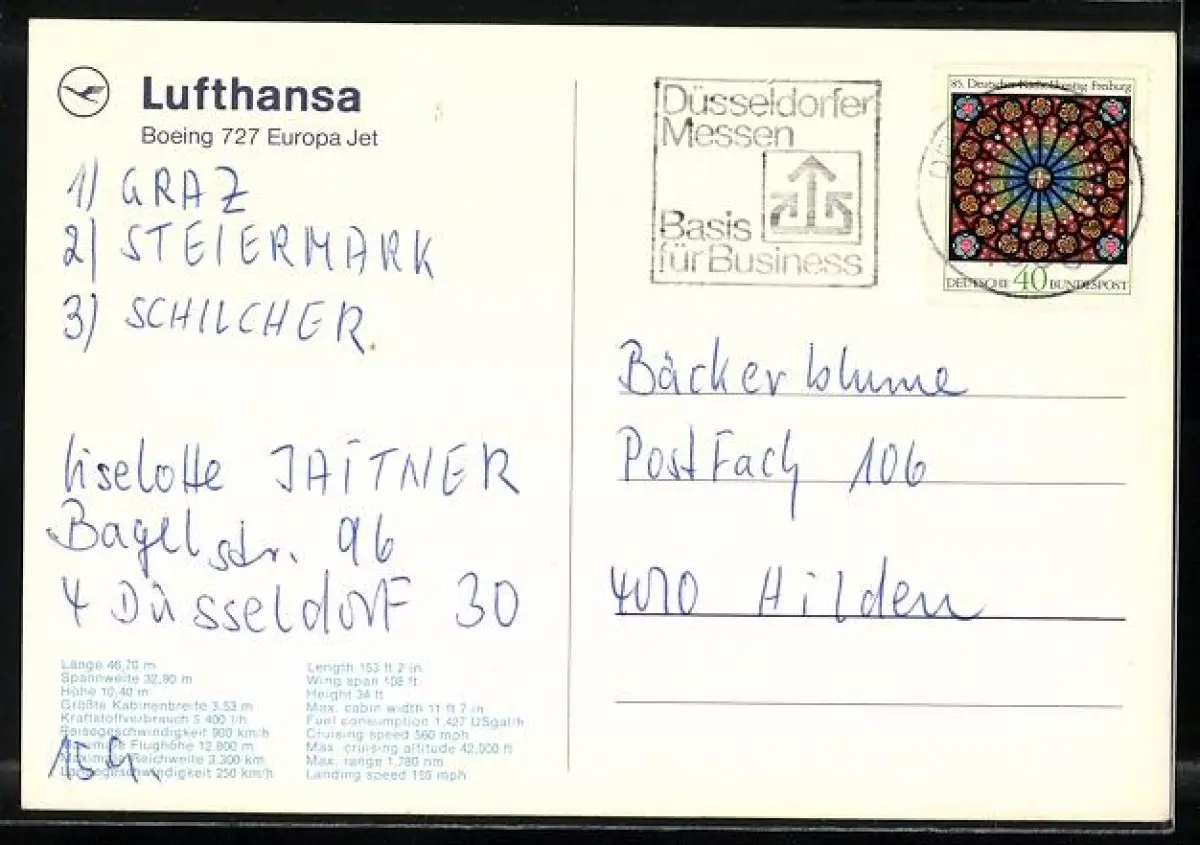 Lufthansa
Boeing 727 Europa Jet
1) GRAZ
2) STEIERMARK
3) SCHILCHER.
Liselotte JAITNER
Bagelstr. 96
4 DÜSSELDORF 30
Länge 46,70 m
Spannweite 32,90 m
Höhe 10,40 m
Größte Kabinenbreite 3,53 m
Kraftstoffverbrauch 5.400 l/h
Reisegeschwindigkeit 900 km/h
Maximale Flughöhe 12.800 m
Maximale Reichweite 3.300 km
Landegeschwindigkeit 250 km/h
15 9.
Length 153 ft 2 in
Wing span 108 ft
Height 34 ft
Max. cabin width 11 ft 7 in
Fuel consumption 1,427 USgal/h
Cruising speed 560 mph
Max. cruising altitude 42,000 ft
Max. range 1,780 nm
Landing speed 155 mph
Düsseldorfer
Messen
Basis
für Business
85. Deutscher Katholikentag Freiburg
DEUTSCHE 40 BUNDESPOST
Bäckerblume
PostFach 106
4010 Hilden